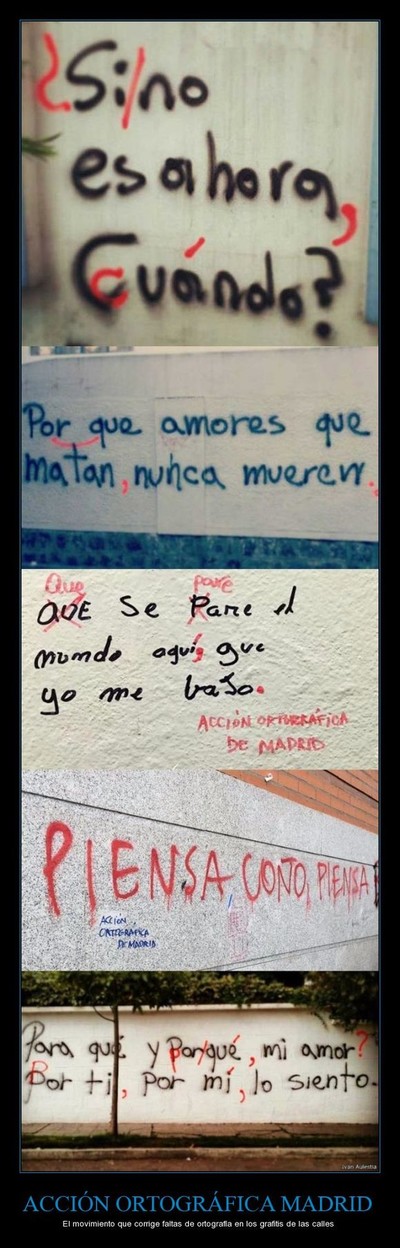 ¿Si/no
es ahora,
Cuándo?
Por que amores que
matan, nunca mueren.
Que pare
QUE Se Pare el
mundo aquí, que
yo me bajo.
ACCIÓN ORTOGRÁFICA
DE MADRID
PIENSA, COÑO, PIENSA
ACCIÓN
ORTOGRÁFICA
DE MADRID
Para qué y por/qué, mi amor?
Por ti, por mí, lo siento.
Ivan Aulestia
ACCIÓN ORTOGRÁFICA MADRID
El movimiento que corrige faltas de ortografía en los grafitis de las calles